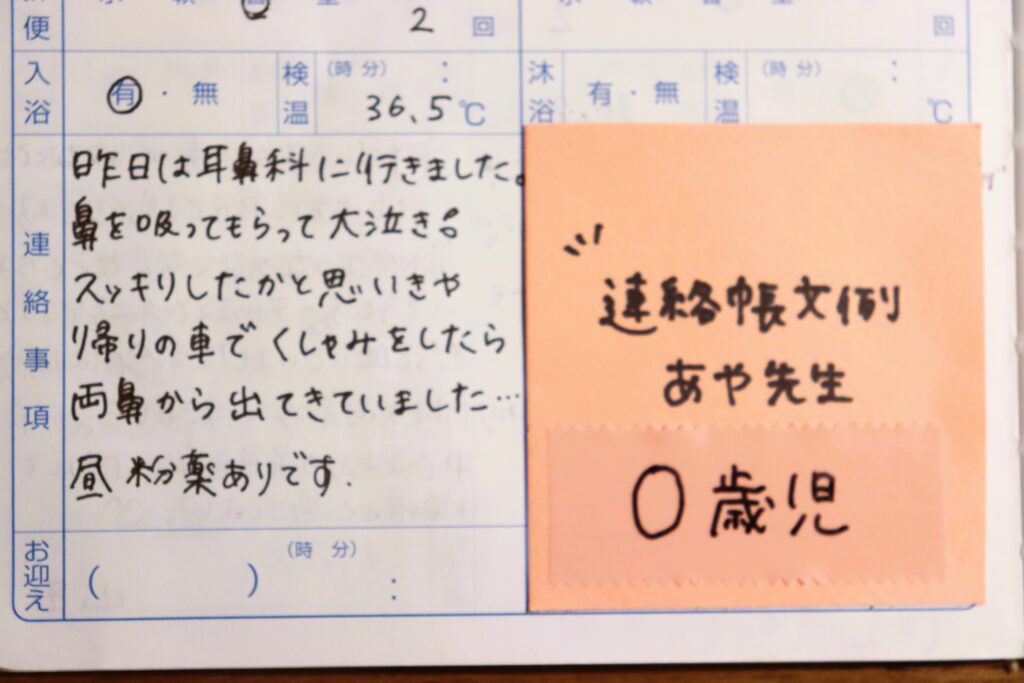 便 2 回 回
入浴 有・無 検温 (時 分) : 36.5℃ 沐浴 有・無 検温 (時 分) : ℃
連絡事項
昨日は耳鼻科に行きました。
鼻を吸ってもらって大泣き。
スッキリしたかと思いきや
帰りの車でくしゃみをしたら
両鼻から出てきていました…
昼 粉薬ありです.
お迎え ( ) (時 分) :
連絡帳文例
あや先生
0歳児